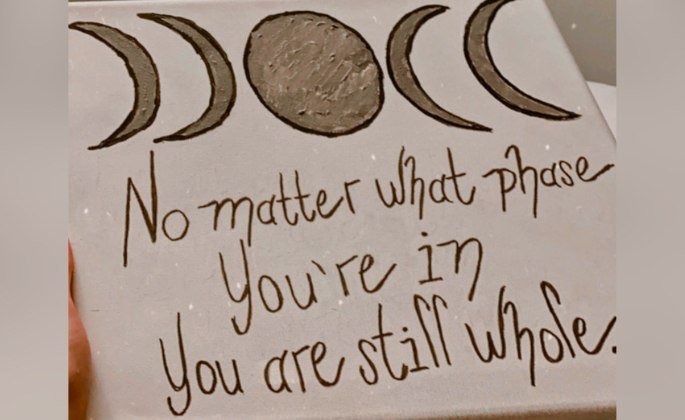 No matter what phase
You're in
You are still whole.